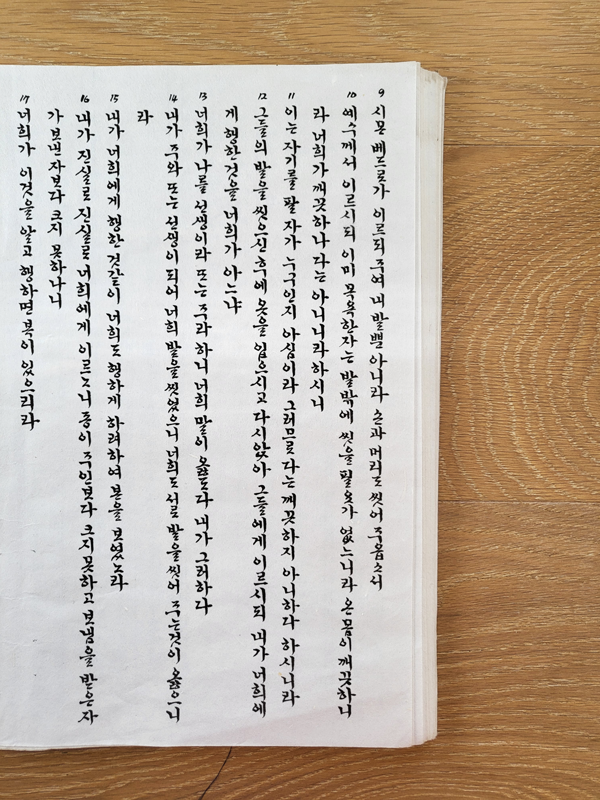 9 시몬 베드로가 이르되 주여 내 발뿐 아니라 손과 머리도 씻어 주옵소서
10 예수께서 이르시되 이미 목욕한 자는 발밖에 씻을 필요가 없느니라 온 몸이 깨끗하니
라 너희가 깨끗하나 다는 아니니라 하시니
11 이는 자기를 팔 자가 누구인지 아심이라 그러므로 다는 깨끗하지 아니하다 하시니라
12 그들의 발을 씻으신 후에 옷을 입으시고 다시 앉아 그들에게 이르시되 내가 너희에
게 행한 것을 너희가 아느냐
13 너희가 나를 선생이라 또는 주라 하니 너희 말이 옳도다 내가 그러하다
14 내가 주와 또는 선생이 되어 너희 발을 씻었으니 너희도 서로 발을 씻어 주는 것이 옳으니
라
15 내가 너희에게 행한 것 같이 너희도 행하게 하려하여 본을 보였노라
16 내가 진실로 진실로 너희에게 이르노니 종이 주인보다 크지 못하고 보냄을 받은 자
가 보낸 자보다 크지 못하나니
17 너희가 이것을 알고 행하면 복이 있으리라